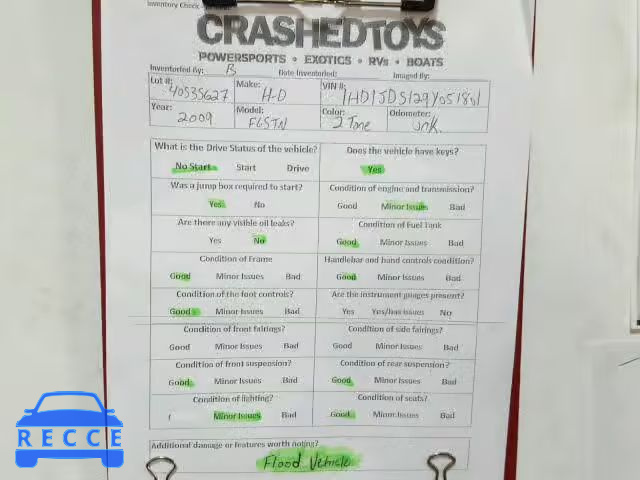 Inventory Check
CRASHEDTOYS
POWERSPORTS • EXOTICS • RVs • BOATS
Inventoried By: B Date Inventoried: Imaged By:
Lot #: 40535627 Make: H-D VIN #: 1HD1JDS129Y051861
Year: 2009 Model: FLSTN Color: 2 Tone Odometer: unk.
What is the Drive Status of the vehicle? Does the vehicle have keys?
No Start Start Drive Yes
Was a jump box required to start? Condition of engine and transmission?
Yes No Good Minor Issues Bad
Are there any visible oil leaks? Condition of Fuel Tank
Yes No Good Minor Issues Bad
Condition of Frame Handlebar and hand controls condition?
Good Minor Issues Bad Good Minor Issues Bad
Condition of the foot controls? Are the instrument gauges present?
Good Minor Issues Bad Yes Yes/has issues No
Condition of front fairings? Condition of side fairings?
Good Minor Issues Bad Good Minor Issues Bad
Condition of front suspension? Condition of rear suspension?
Good Minor Issues Bad Good Minor Issues Bad
Condition of lighting? Condition of seats?
Minor Issues Bad Good Minor Issues Bad
Additional damage or features worth noting?
Flood Vehicle
RECCE